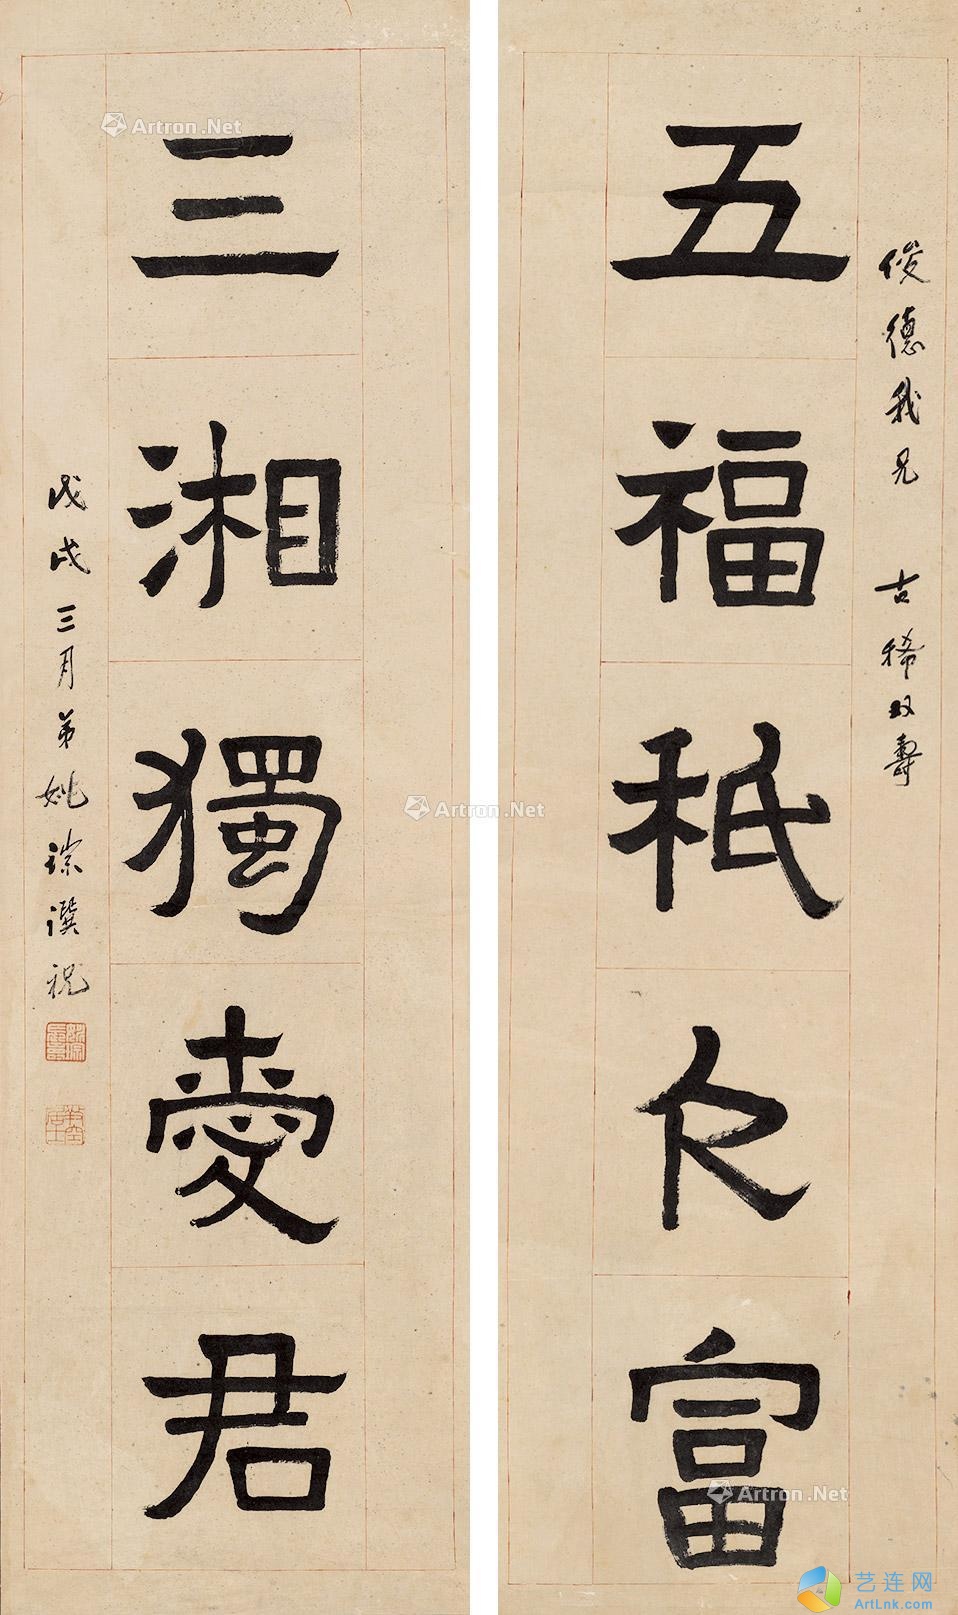 俊德我兄 古稀双壽
五福秪欠富
三湘獨愛君
戊戌三月弟姚琮譔祝
Artron.Net
Artron.Net
Artron.Net
艺连网
ArtLnk.com